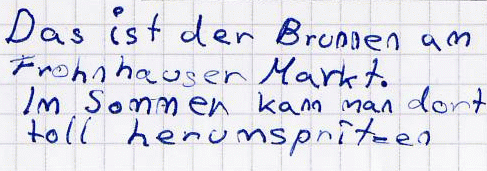 Das ist der Brunnen am
Frohnhauser Markt.
Im Sommer kann man dort
toll herumspritzen